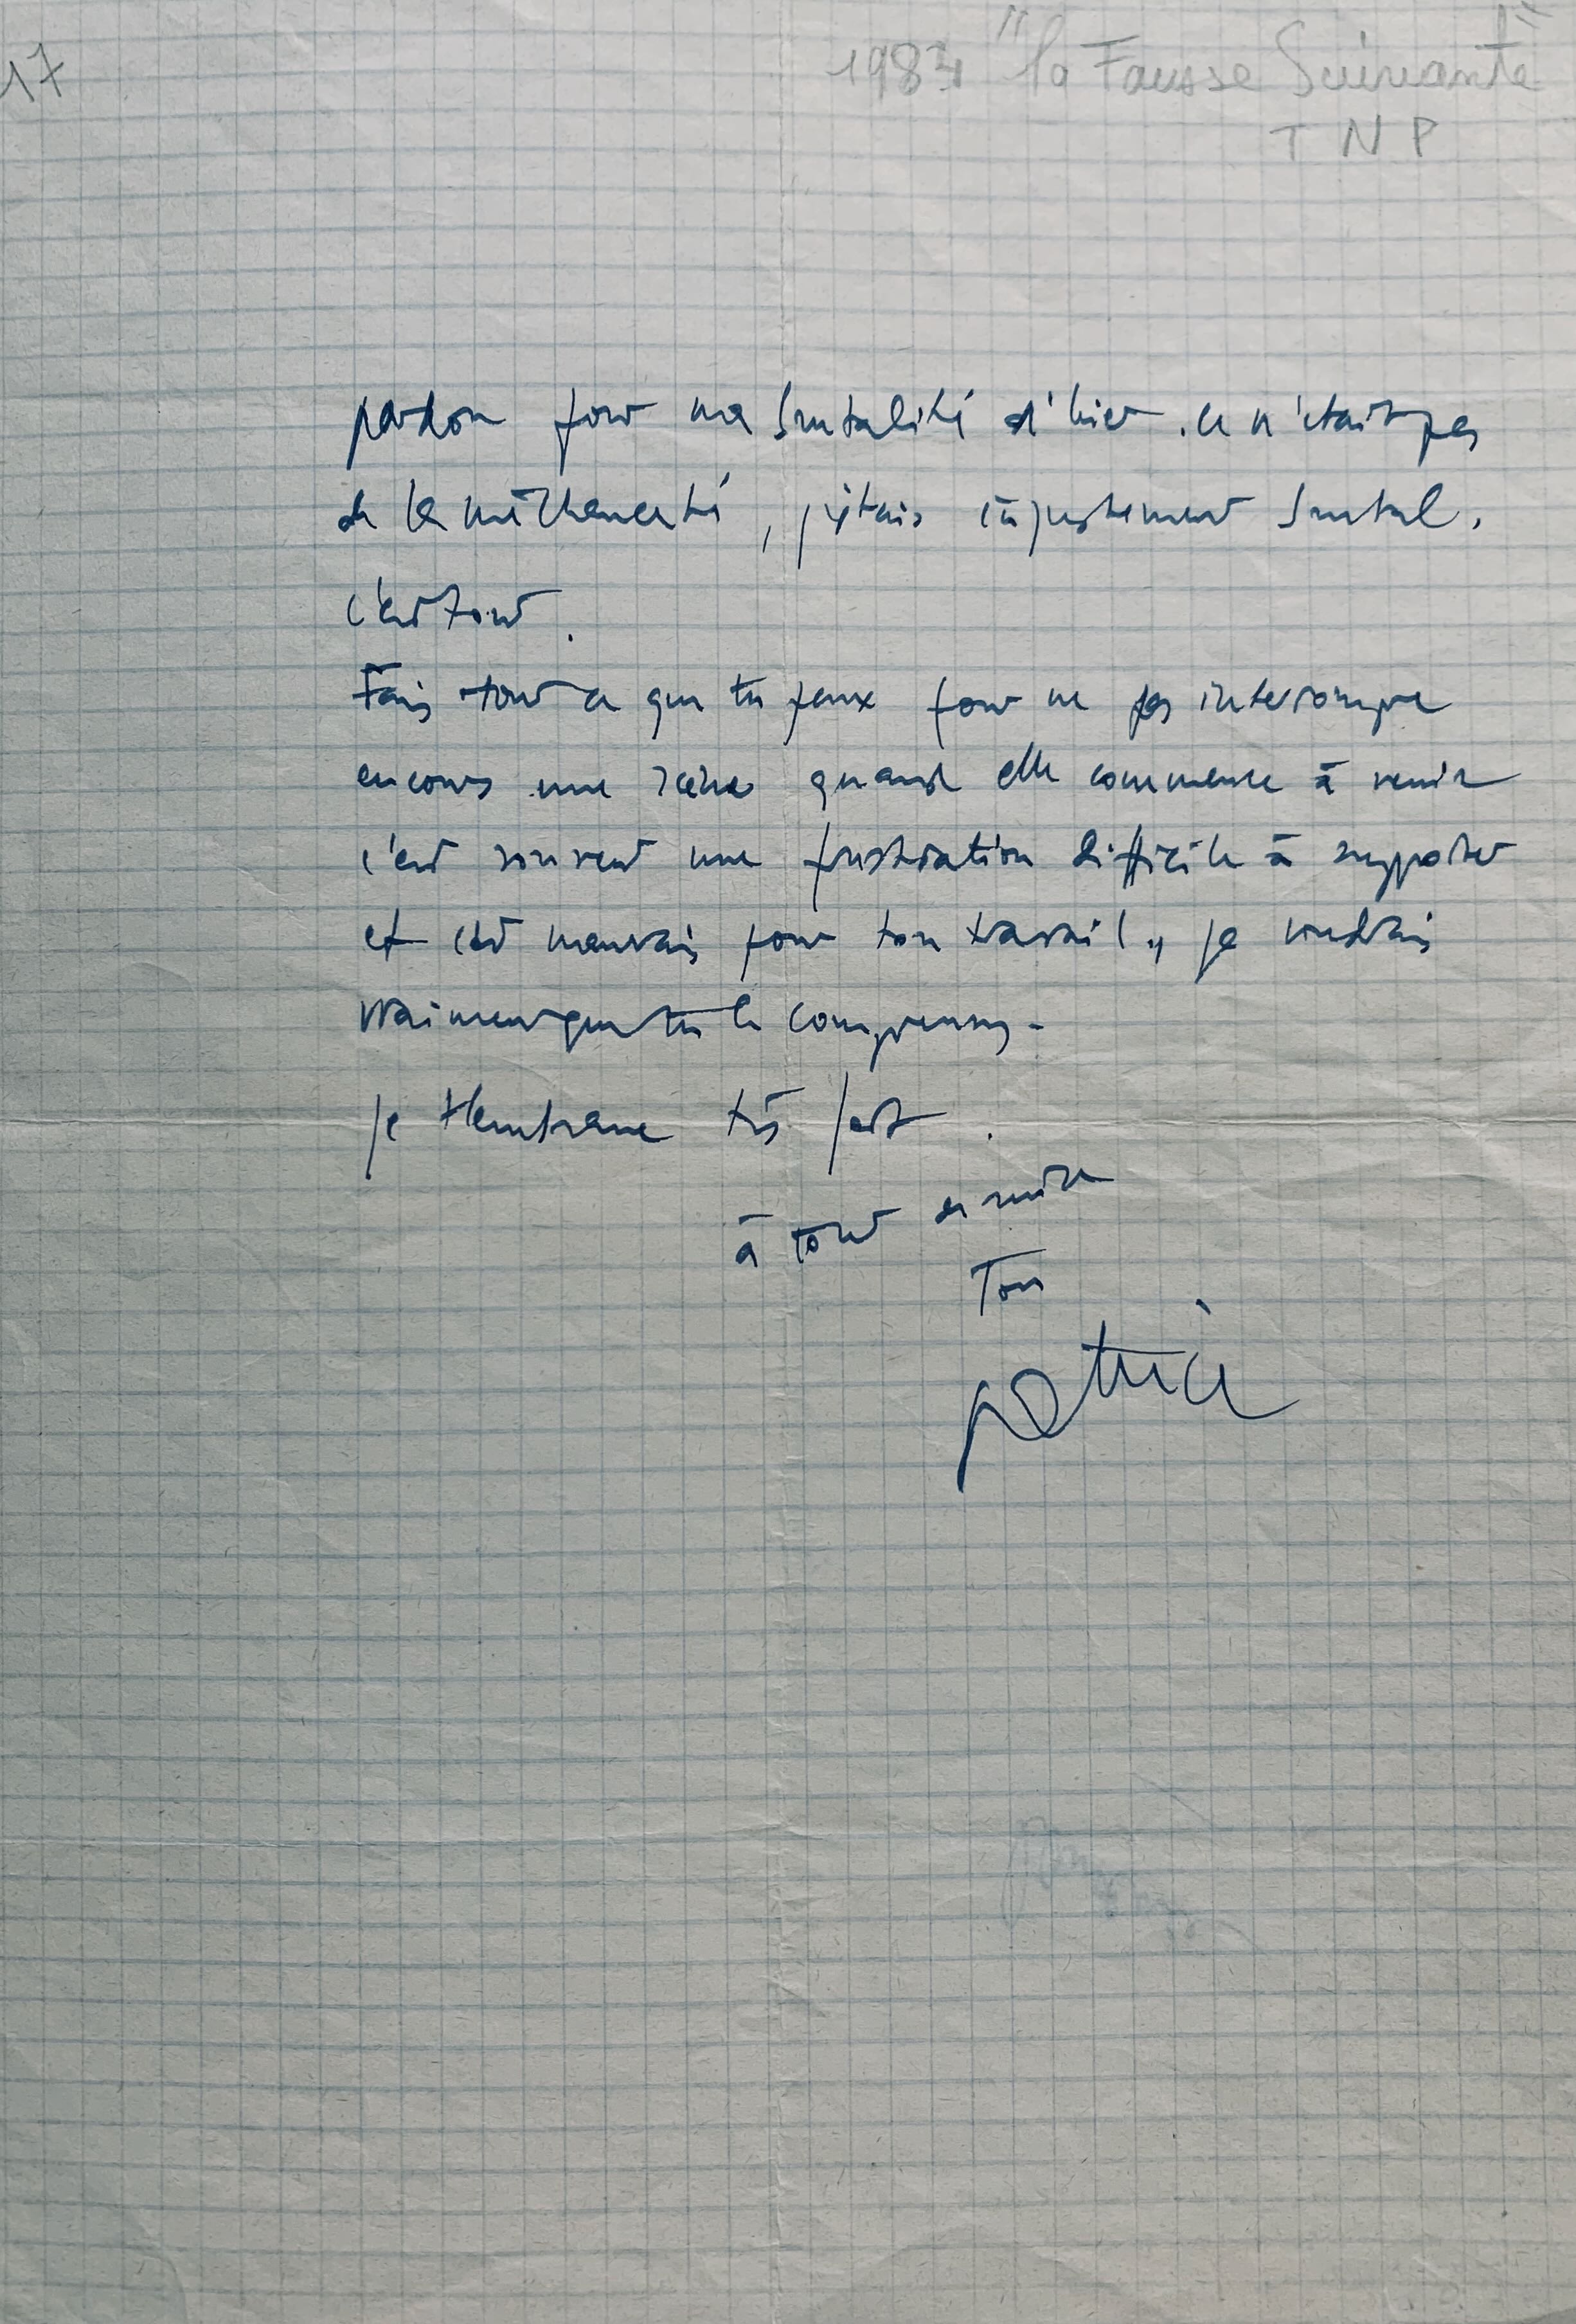 17
"la Fausse Suivante"
T N P
pardon pour ma brutalité d'hier. ce n'était pas
de la méchanceté, j'étais injustement brutal.
c'est tout.
Fais tout ce que tu peux pour ne pas interrompre
en cours une scène quand elle commence à venir
c'est souvent une frustration difficile à supporter
et c'est mauvais pour ton travail, je voudrais
vraiment que tu le comprennes -
je t'embrasse très fort.
à tout de suite
Ton
patrice